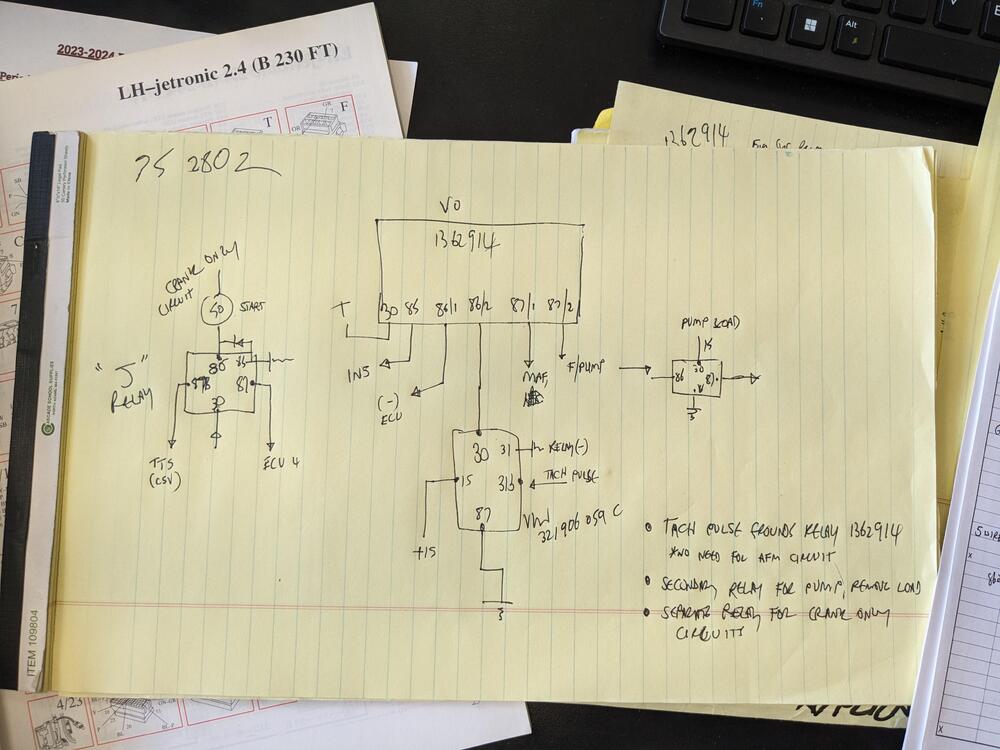 2023-2024
LH–jetronic 2.4 (B 230 FT)
T
F
GR
OR
Fn
Alt
1362914
75 2802
VO
1362914
30 85 86/1 86/2 87/1 87/2
T
IN5
(-)
ECU
MAF,
F/PUMP
CRANK ONLY
CIRCUIT
50
START
"J"
RELAY
85
86
87B
87
30
TTS
(CSV)
ECU 4
PUMP LOAD
15
30
86
87
30 31
RELAY (-)
15
31b
TACH PULSE
87
VW
321 906 059 C
+15
• TACH PULSE GROUNDS RELAY 1362914
*NO NEED FOR AFM CIRCUIT
• SECONDARY RELAY FOR PUMP, REMOVE LOAD
• SEPARATE RELAY FOR CRANK ONLY
CIRCUITS
ARCADE SCHOOL SUPPLIES
ITEM 109804
4/23